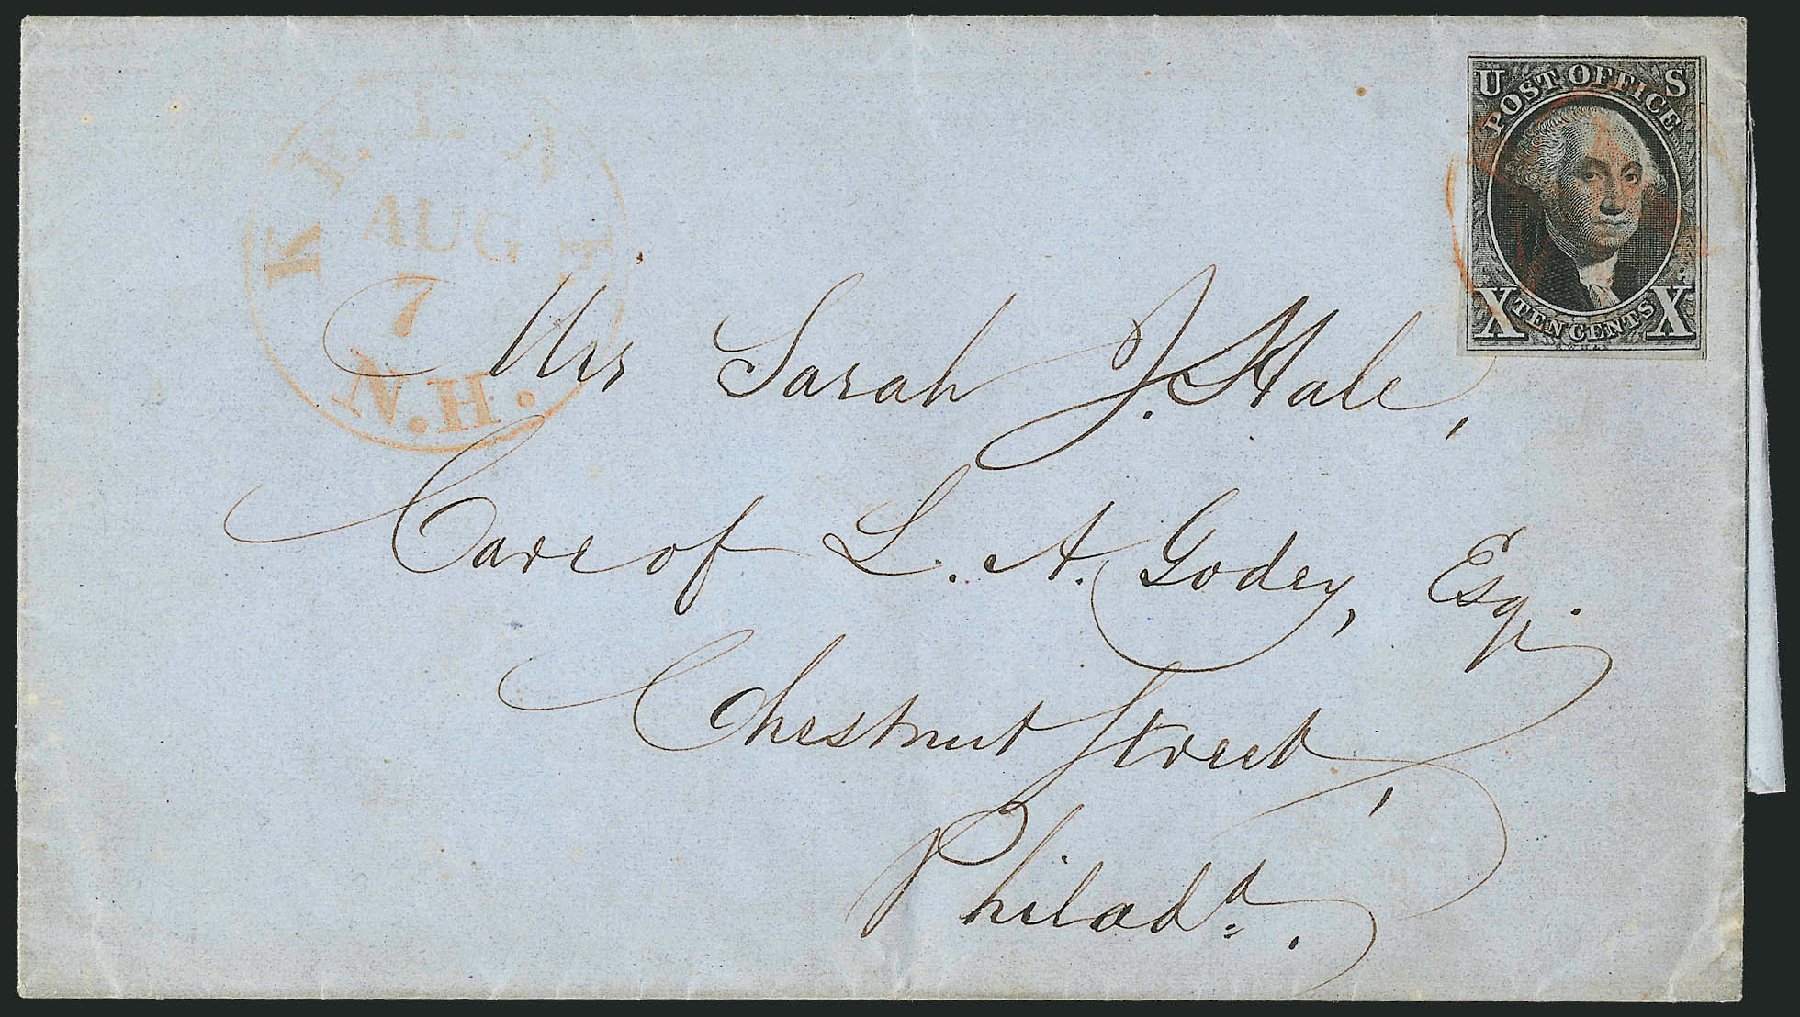 KEENE
AUG
7
N.H.
U S
POST OFFICE
X TEN CENTS X
Mrs Sarah J. Hale,
Care of L. A. Godey, Esq.
Chestnut Street,
Philada.